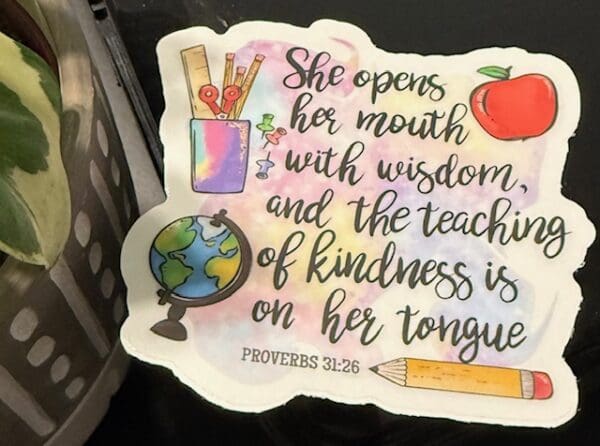 She opens
her mouth
with wisdom,
and the teaching
of kindness is
on her tongue
PROVERBS 31:26